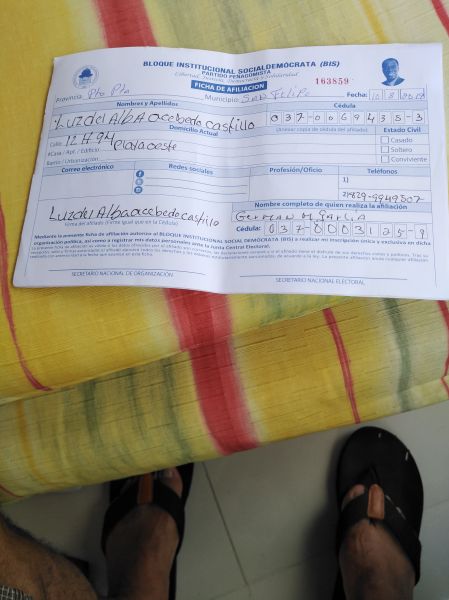 BLOQUE INSTITUCIONAL SOCIALDEMÓCRATA (BIS)
PARTIDO PEÑAGOMISTA
Libertad, Justicia, Democracia y Solidaridad
FICHA DE AFILIACIÓN
163859
Provincia Pto Pta Municipio: San Felipe Fecha:
Nombres y Apellidos Cédula
Luz del AlbA acebedo castillo 037-0069435-3
(Anexar copia de cédula del afiliado)
Domicilio Actual Estado Civil
Calle 12 # 94
#Casa / Apt. / Edificio
Barrio / Urbanización
Casado
Soltero
Conviviente
Correo electrónico Redes sociales Profesión/Oficio Teléfonos
1)
2) 829-9949507
Luz del Alba acebedo castillo
Firma del afiliado (Firme igual que en la Cédula)
Nombre completo de quien realiza la afiliación
German M. García
Cédula: 037-0003125-9
Mediante la presente ficha de afiliación autorizo al BLOQUE INSTITUCIONAL SOCIAL DEMÓCRATA (BIS) a realizar mi inscripción única y exclusiva en dicha
organización política, así como a registrar mis datos personales ante la Junta Central Electoral.
SECRETARIO NACIONAL DE ORGANIZACIÓN SECRETARIO NACIONAL ELECTORAL